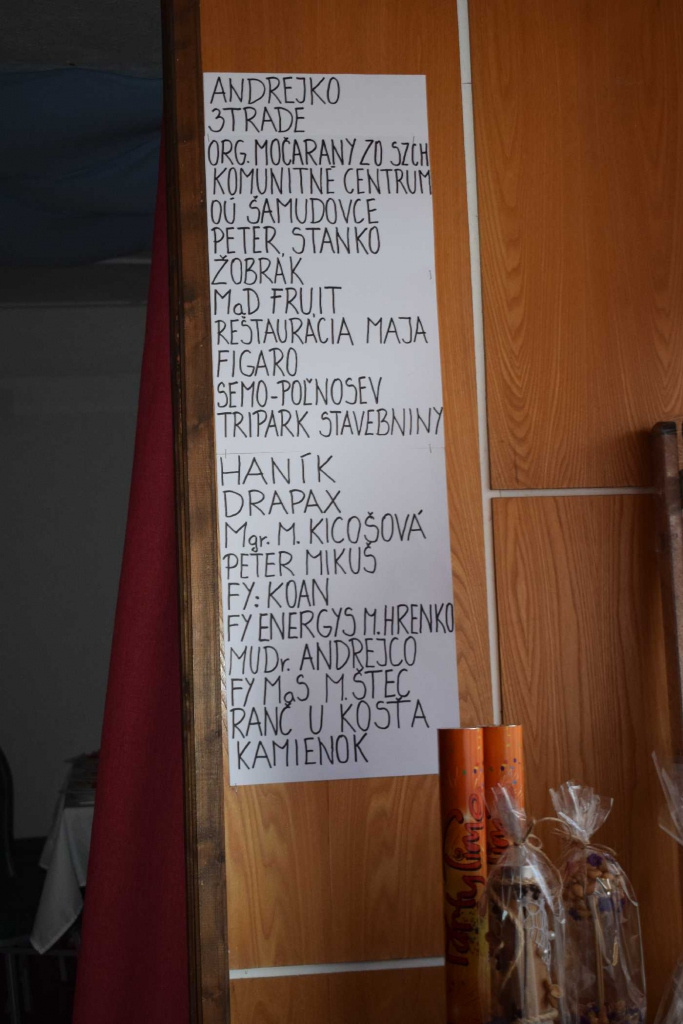 ANDREJKO
3TRADE
ORG. MOČARANY ZO SZCH
KOMUNITNÉ CENTRUM
OÚ ŠAMUDOVCE
PETER, STANKO
ŽOBRÁK
MaD FRUIT
REŠTAURÁCIA MAJA
FIGARO
SEMO-POĽNOSEV
TRIPARK STAVEBNINY
HANÍK
DRAPAX
Mgr. M. KICOŠOVÁ
PETER MIKUŠ
FY: KOAN
FY ENERGYS M.HRENKO
MUDr. ANDREJCO
FY MaS M.ŠTEC
RANČ U KOSŤA
KAMIENOK
Partytime